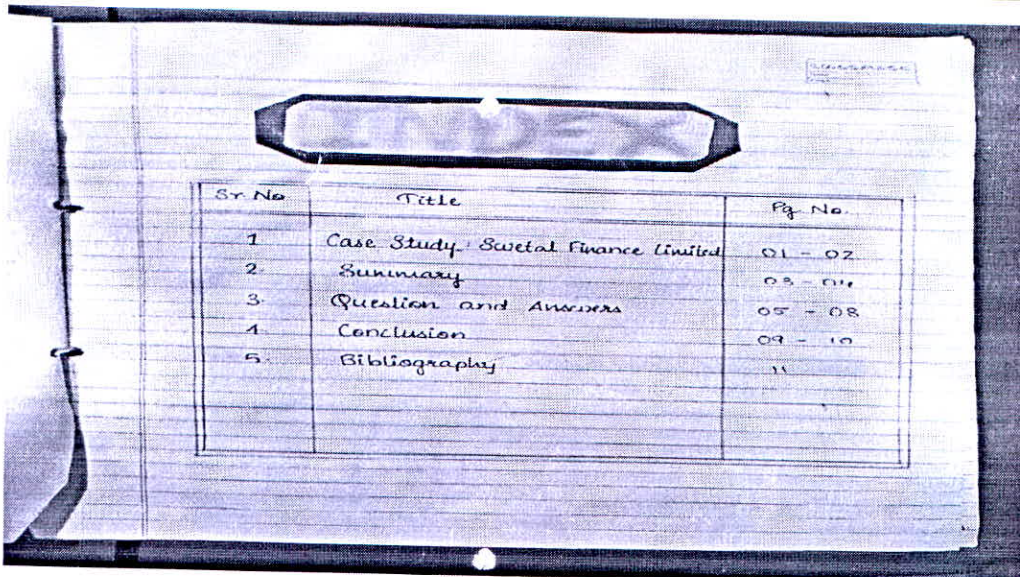 INDEX
Sr. No Title Pg. No.
1 Case Study: Swetal Finance Limited 01 - 02
2. Summary 03 - 04
3. Question and Answers 05 - 08
4. Conclusion 09 - 10
5. Bibliography 11